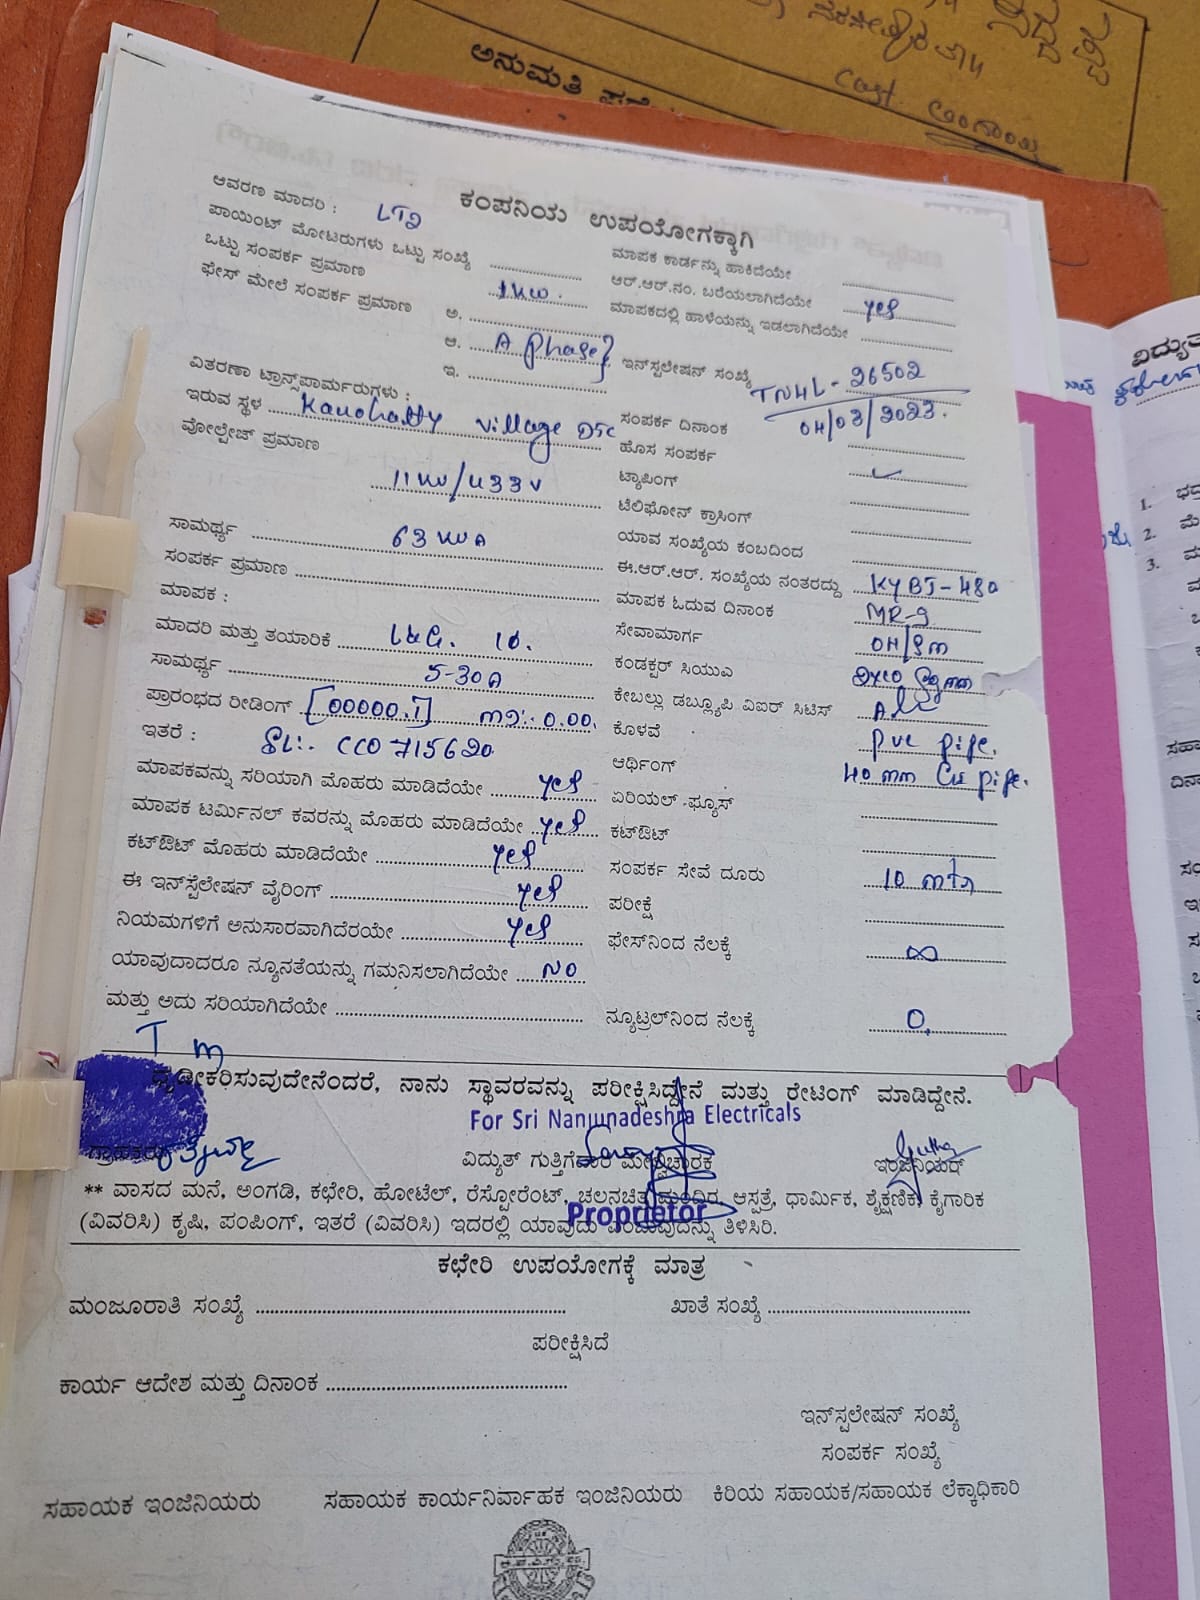 ಅನುಮತಿ
ಕಂಪನಿಯ ಉಪಯೋಗಕ್ಕಾಗಿ
ಆವರಣ ಮಾದರಿ : LT2
ಪಾಯಿಂಟ್ ಮೋಟರುಗಳು ಒಟ್ಟು ಸಂಖ್ಯೆ
ಮಾಪಕ ಕಾರ್ಡನ್ನು ಹಾಕಿದೆಯೇ
ಒಟ್ಟು ಸಂಪರ್ಕ ಪ್ರಮಾಣ 1KW.
ಆರ್.ಆರ್.ನಂ. ಬರೆಯಲಾಗಿದೆಯೇ yes
ಫೇಸ್ ಮೇಲೆ ಸಂಪರ್ಕ ಪ್ರಮಾಣ ಅ.
ಮಾಪಕದಲ್ಲಿ ಹಾಳೆಯನ್ನು ಇಡಲಾಗಿದೆಯೇ
ಆ. A Phase
ಇ.
ಇನ್‌ಸ್ಟಲೇಷನ್ ಸಂಖ್ಯೆ TN4L-26502
ವಿತರಣಾ ಟ್ರಾನ್ಸ್‌ಪಾರ್ಮರುಗಳು :
ಸಂಪರ್ಕ ದಿನಾಂಕ 04/03/2023.
ಇರುವ ಸ್ಥಳ village
ಹೊಸ ಸಂಪರ್ಕ
ವೋಲ್ಟೇಜ್ ಪ್ರಮಾಣ 11KV/433V
ಟ್ಯಾಪಿಂಗ್
ಟೆಲಿಫೋನ್ ಕ್ರಾಸಿಂಗ್
ಸಾಮರ್ಥ್ಯ 63 KVA
ಯಾವ ಸಂಖ್ಯೆಯ ಕಂಬದಿಂದ
ಸಂಪರ್ಕ ಪ್ರಮಾಣ
ಈ.ಆರ್.ಆರ್. ಸಂಖ್ಯೆಯ ನಂತರದ್ದು
ಮಾಪಕ :
ಮಾಪಕ ಓದುವ ದಿನಾಂಕ
ಮಾದರಿ ಮತ್ತು ತಯಾರಿಕೆ L&G. 10.
ಸೇವಾಮಾರ್ಗ
ಸಾಮರ್ಥ್ಯ 5-30A
ಕಂಡಕ್ಟರ್ ಸಿಯುಎ
ಪ್ರಾರಂಭದ ರೀಡಿಂಗ್ [00000.1] 0.00.
ಕೇಬಲ್ಲು ಡಬ್ಲ್ಯೂಪಿ ವಿಐರ್ ಸಿಟಿಸ್
ಇತರೆ : SL:. CC0715620
ಕೊಳವೆ pvc pipe.
ಮಾಪಕವನ್ನು ಸರಿಯಾಗಿ ಮೊಹರು ಮಾಡಿದೆಯೇ yes
ಆರ್ಥಿಂಗ್ 40 mm pipe.
ಮಾಪಕ ಟರ್ಮಿನಲ್ ಕವರನ್ನು ಮೊಹರು ಮಾಡಿದೆಯೇ yes
ಏರಿಯಲ್ ಫ್ಯೂಸ್
ಕಟ್‌ಔಟ್ ಮೊಹರು ಮಾಡಿದೆಯೇ yes
ಕಟ್‌ಔಟ್
ಈ ಇನ್‌ಸ್ಟೆಲೇಷನ್ ವೈರಿಂಗ್ yes
ಸಂಪರ್ಕ ಸೇವೆ ದೂರು
ನಿಯಮಗಳಿಗೆ ಅನುಸಾರವಾಗಿದೆರಯೇ yes
ಪರೀಕ್ಷೆ
ಯಾವುದಾದರೂ ನ್ಯೂನತೆಯನ್ನು ಗಮನಿಸಲಾಗಿದೆಯೇ NO
ಫೇಸ್‌ನಿಂದ ನೆಲಕ್ಕೆ ∞
ಮತ್ತು ಅದು ಸರಿಯಾಗಿದೆಯೇ
ನ್ಯೂಟ್ರಲ್‌ನಿಂದ ನೆಲಕ್ಕೆ 0.
ನಾನು ಸ್ಥಾವರವನ್ನು ಪರೀಕ್ಷಿಸಿದ್ದೇನೆ ಮತ್ತು ರೇಟಿಂಗ್ ಮಾಡಿದ್ದೇನೆ.
For Sri Nanjunadeshra Electricals
ವಿದ್ಯುತ್ ಗುತ್ತಿಗೆದಾರ ಮೇಲ್ವಿಚಾರಕ
ಇಂಜಿನಿಯರ್
** ವಾಸದ ಮನೆ, ಅಂಗಡಿ, ಕಛೇರಿ, ಹೋಟೆಲ್, ರೆಸ್ಟೋರೆಂಟ್, ಚಲನಚಿತ್ರ ಮಂದಿರ, ಆಸ್ಪತ್ರೆ, ಧಾರ್ಮಿಕ, ಶೈಕ್ಷಣಿಕ, ಕೈಗಾರಿಕ
(ವಿವರಿಸಿ) ಕೃಷಿ, ಪಂಪಿಂಗ್, ಇತರೆ (ವಿವರಿಸಿ) ಇದರಲ್ಲಿ ಯಾವುದು ಎಂಬುವುದನ್ನು ತಿಳಿಸಿರಿ.
Proprietor
ಕಛೇರಿ ಉಪಯೋಗಕ್ಕೆ ಮಾತ್ರ
ಮಂಜೂರಾತಿ ಸಂಖ್ಯೆ
ಖಾತೆ ಸಂಖ್ಯೆ
ಪರೀಕ್ಷಿಸಿದೆ
ಕಾರ್ಯ ಆದೇಶ ಮತ್ತು ದಿನಾಂಕ
ಇನ್‌ಸ್ಟಲೇಷನ್ ಸಂಖ್ಯೆ
ಸಂಪರ್ಕ ಸಂಖ್ಯೆ
ಸಹಾಯಕ ಇಂಜಿನಿಯರು
ಸಹಾಯಕ ಕಾರ್ಯನಿರ್ವಾಹಕ ಇಂಜಿನಿಯರು
ಕಿರಿಯ ಸಹಾಯಕ/ಸಹಾಯಕ ಲೆಕ್ಕಾಧಿಕಾರಿ